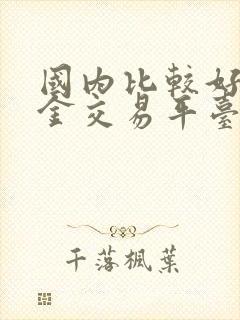 國內比較好
金交易平臺
千落楓葉